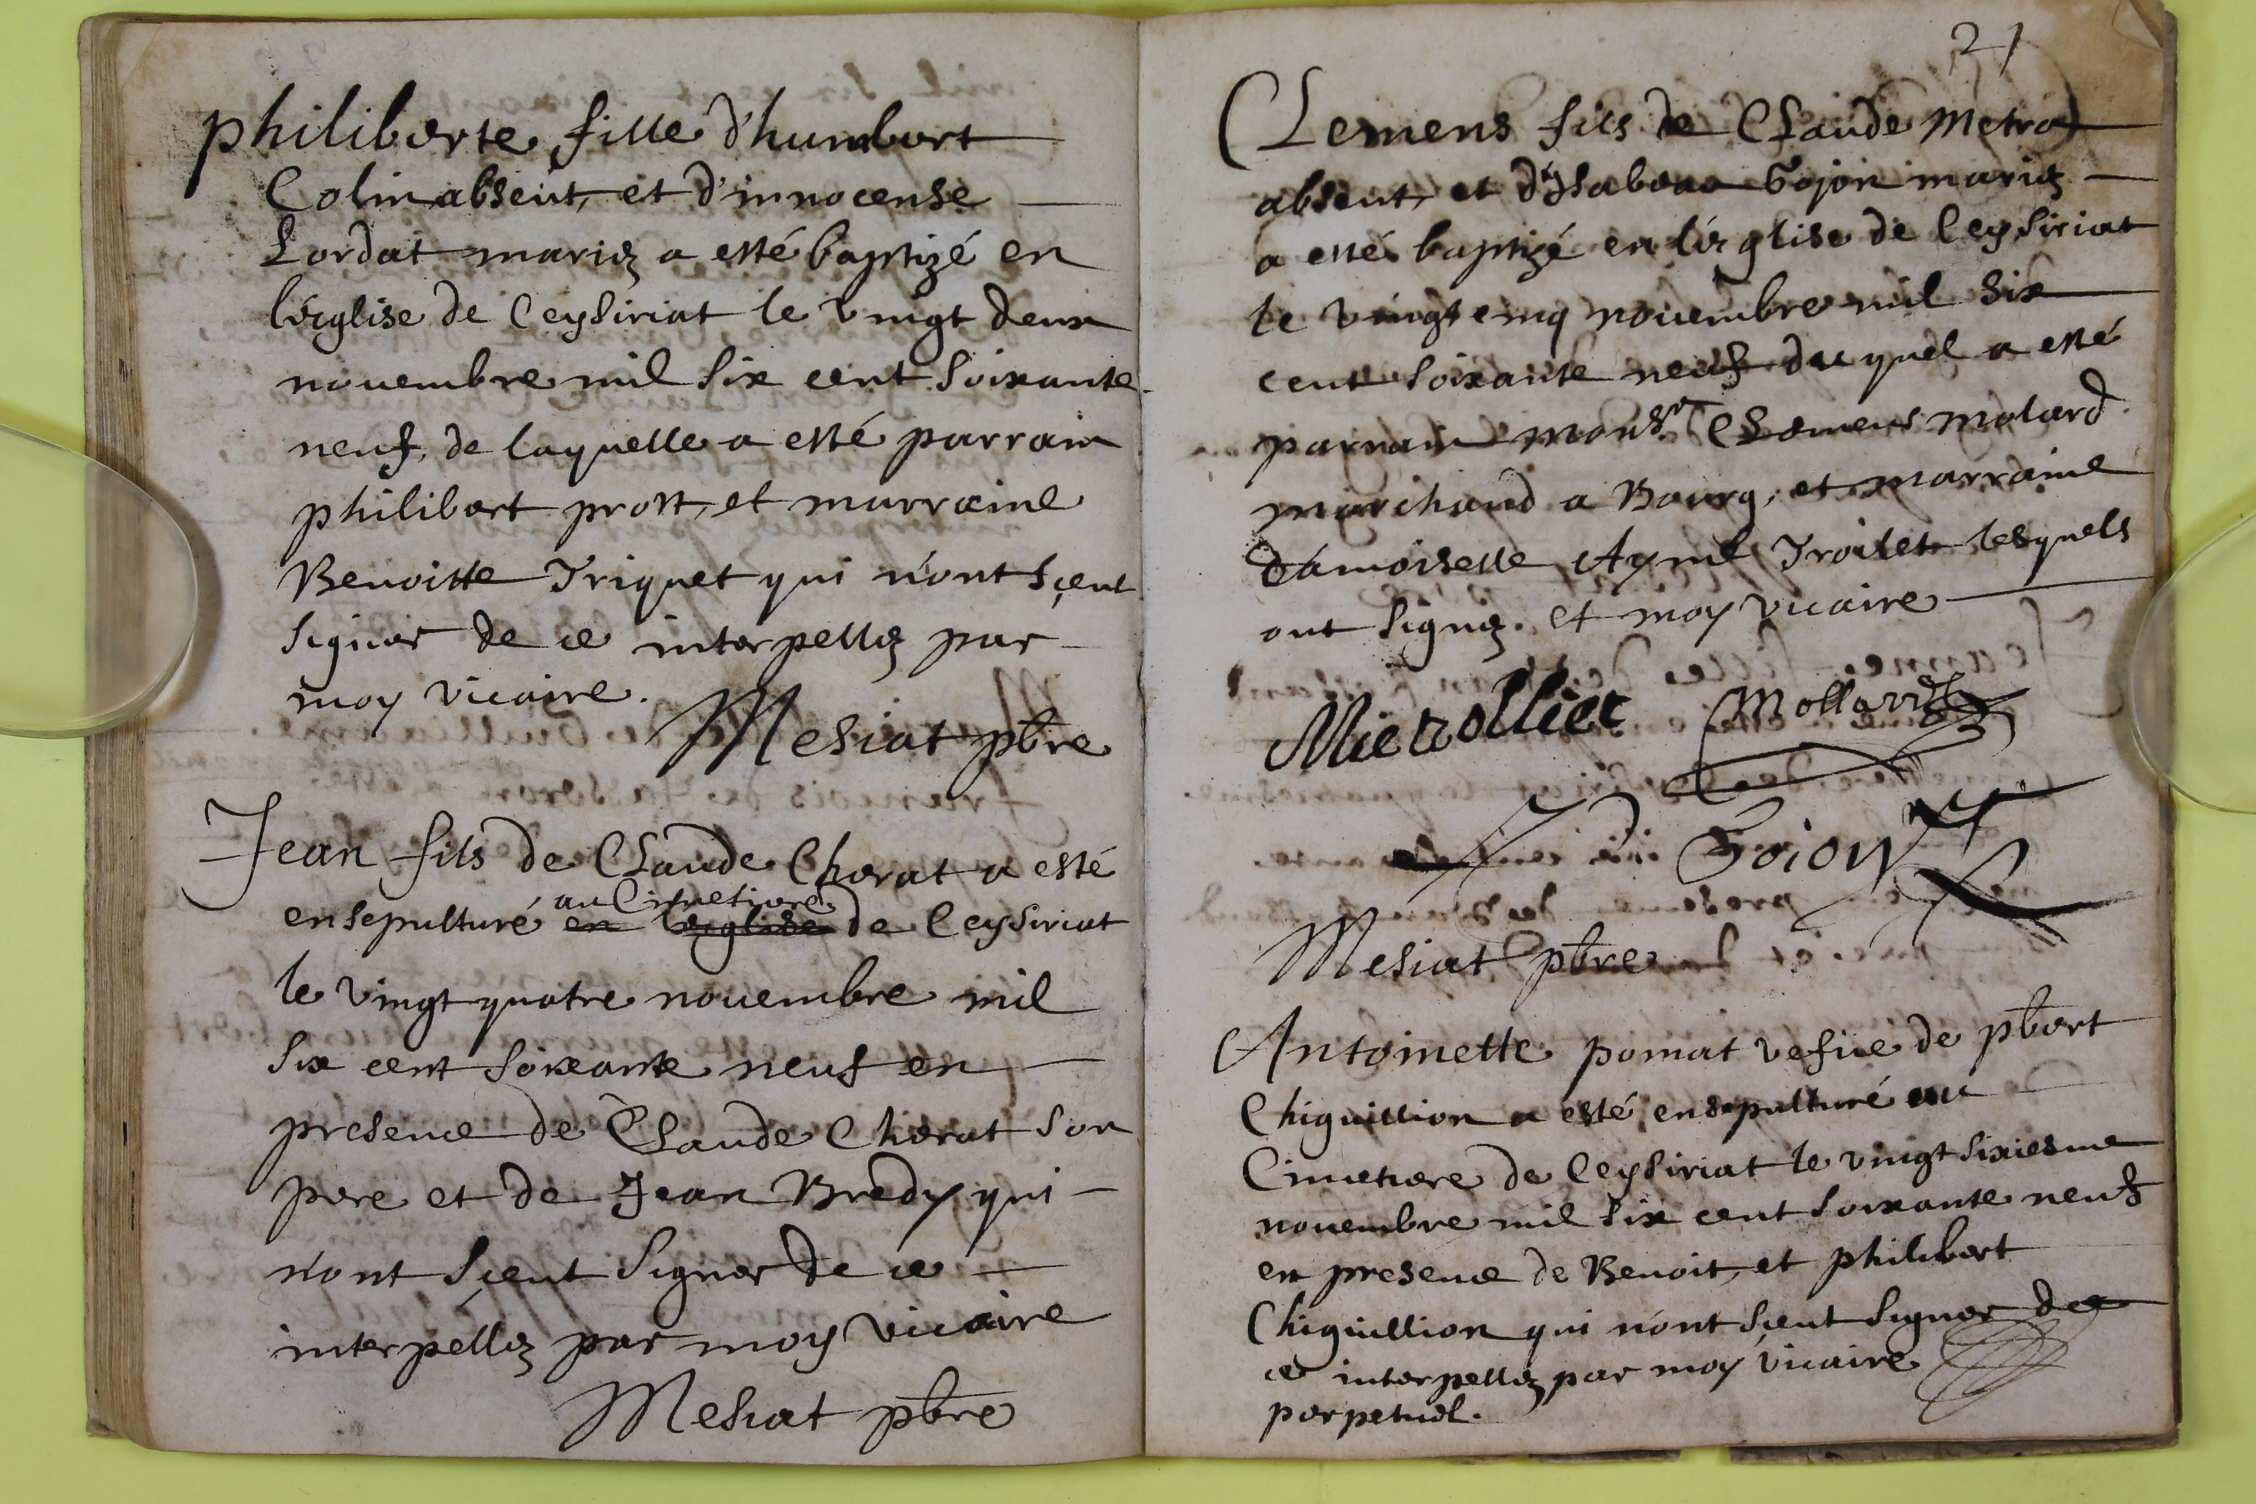 philiberte fille d'humbert
Colin absent, et d'innocense
Lordat mariez a esté baptizé en
l'église de Ceysiriat le vingt deux
nouembre mil six cent soixante
neuf, de laquelle a esté parrain
philibert prost, et marraine
Benoitte Triquet qui n'ont sçeut
signer de ce interpellez par
moy vicaire.
Mesiat pbre
Jean fils de Claude Cherat a esté
au Cimetiere
ensepulturé en l'eglise de Ceysiriat
le vingt quatre nouembre mil
six cent soixante neuf en
presence de Claude Cherat son
pere et de Jean Bredy qui
n'ont sçeut signer de ce
interpellez par moy vicaire
Mesiat pbre
21
Clemens fils de Claude Metra
absent, et d'ysabeau Gojon mariez
a esté baptizé en l'église de Ceysiriat
le vingt cinq nouembre mil six
cent soixante neuf duquel a esté
parrain Monsr Clemens Molard
marchand a Bourg, et marraine
damoiselle Aymé Trollet lesquels
ont signez. et moy vicaire
Mollard
Goion
Mesiat pbre
Antoinette pomat vefue de pbert
Chiguillion a esté ensepulturé au
Cimetiere de Ceysiriat le vingt sixiesme
nouembre mil six cent soixante neuf
en presence de Benoit, et philibert
Chiguillion qui n'ont sçeut signer de
ce interpellez par moy vicaire
perpetuel.